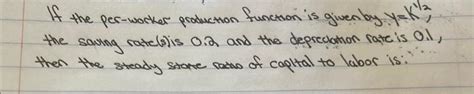 If the per-worker production function is given by y=K^1/2,
the saving rate(s) is 0.2 and the depreciation rate is 0.1,
then the steady state ratio of capital to labor is: